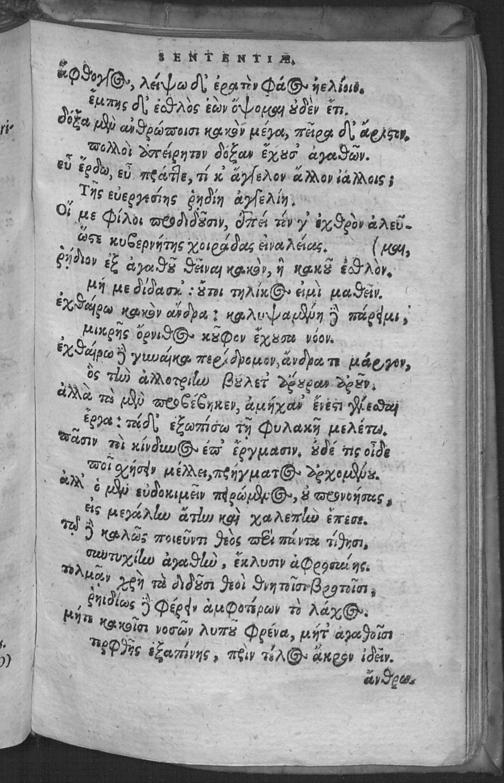 SENTENTIÆ.
ἄφθογγος, λείψω δ' ἐρατὸν φάος ἠελίοιο.
ἔμπης δ' ἐσθλὸς ἐὼν ὄψομαι οὐδὲν ἔτι.
δόξα μὲν ἀνθρώποισι κακὸν μέγα, πεῖρα δ' ἄριστον.
πολλοὶ ἀπείρητον δόξαν ἔχουσ' ἀγαθῶν.
εὖ ἔρδων, εὖ πράττε, τί κ' ἄγγελον ἄλλον ἰάλλοις;
Τῆς εὐεργεσίης ῥηϊδίη ἀγγελίη.
Οἵ με φίλοι προδιδοῦσιν, ἐπεὶ τόν γ' ἐχθρὸν ἀλεῦ-
ὥστε κυβερνήτης χοιράδας εἰναλίας. (μαι,
ῥήδιον ἐξ ἀγαθοῦ θεῖναι κακὸν, ἢ κακοῦ ἐσθλόν.
μή με δίδασκ': οὔτοι τηλίκος εἰμὶ μαθεῖν.
ἐχθαίρω κακὸν ἄνδρα: καλυψαμένη δὲ πάρειμι,
μικρῆς ὄρνιθος κοῦφον ἔχουσα νόον.
ἐχθαίρω δὲ γυναῖκα περίδρομον, ἄνδρα τε μάργον,
ὃς τὴν ἀλλοτρίην βούλετ' ἄρουραν ἀροῦν.
ἀλλὰ τὰ μὲν προβέβηκεν, ἀμήχανόν ἐστι γίνεσθαι
ἔργα: τὰ δ' ἐξοπίσω τῇ φυλακῇ μελέτω.
πᾶσίν τοι κίνδυνος ἐπ' ἔργμασιν. οὐδέ τις οἶδε
ποῖ σχήσειν μέλλει, πρήγματος ἀρχομένου.
ἀλλ' ὁ μὲν εὐδοκιμεῖν πειρώμενος, οὐ προνοήσας,
εἰς μεγάλην ἄτην καὶ χαλεπὴν ἔπεσε.
τῷ δὲ καλῶς ποιεῦντι θεὸς περὶ πάντα τίθησι,
συντυχίην ἀγαθὴν, ἔκλυσιν ἀφροσύνης.
τολμᾶν χρὴ τὰ διδοῦσι θεοὶ θνητοῖσι βροτοῖσι,
ῥηϊδίως δὲ φέρειν ἀμφοτέρων τὸ λάχος.
μήτε κακοῖσι νοσῶν λυποῦ φρένα, μήτ' ἀγαθοῖσι
τερφθῇς ἐξαπίνης, πρὶν τέλος ἄκρον ἰδεῖν.
ἄνθρω.